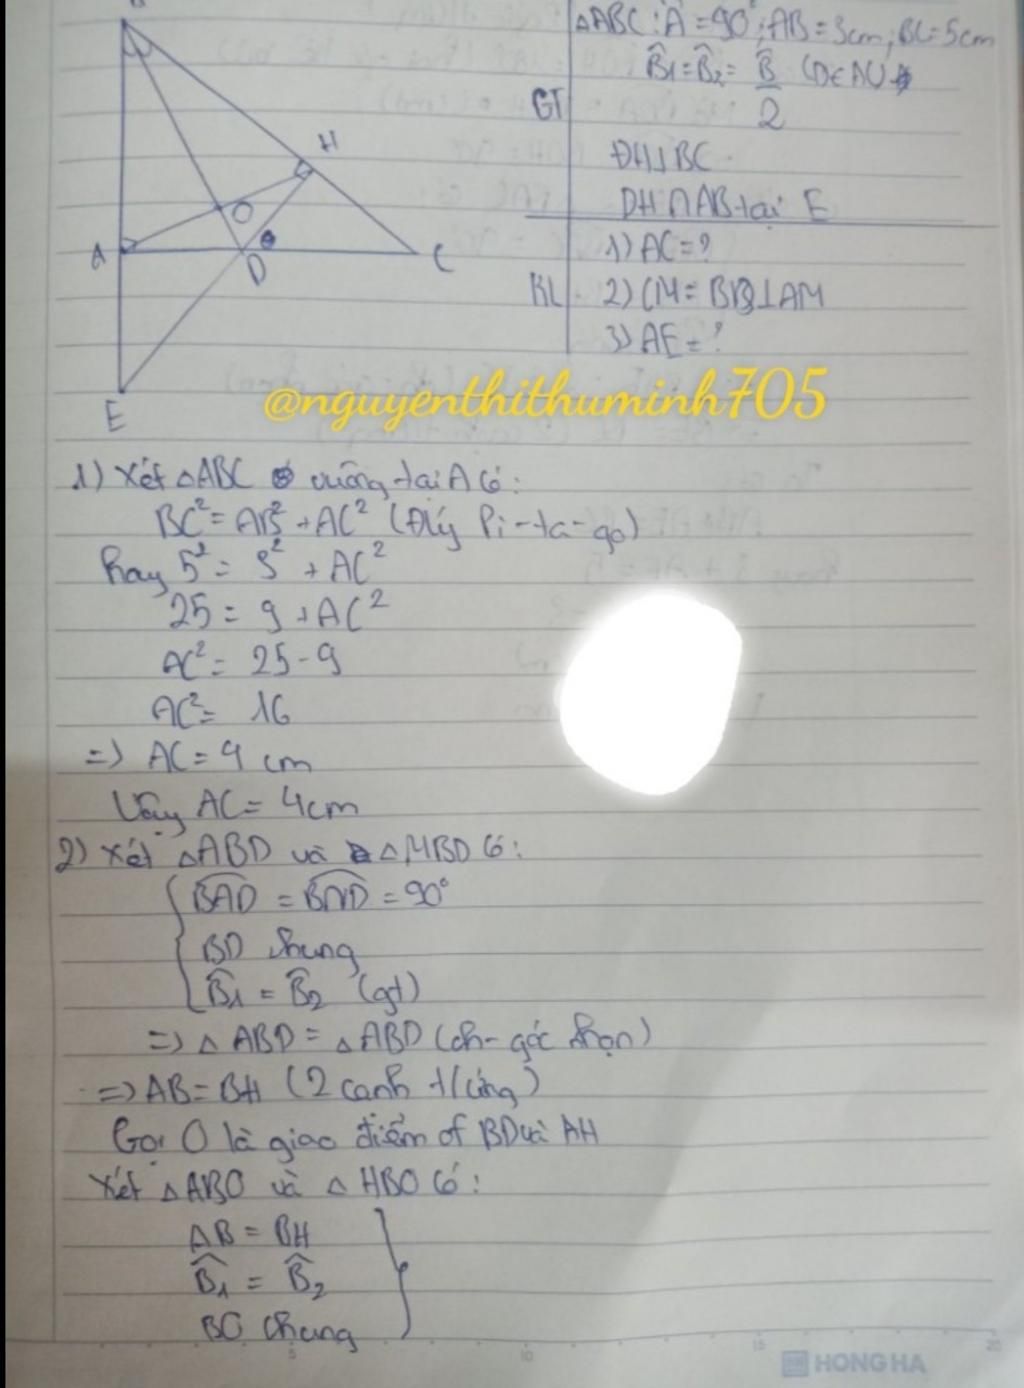 B
H
O
A
D
C
E
△ABC: Â = 90°; AB = 3cm; BC = 5cm
B̂1 = B̂2 = B̂/2 (D∈AC)
GT
DH⊥BC
DH∩AB tại E
1) AC = ?
KL
2) CM = BD⊥AM
3) AE = ?
@nguyenthithuminh705
1) Xét △ABC vuông tại A có:
BC² = AB² + AC² (Đlý Pi-ta-go)
hay 5² = 3² + AC²
25 = 9 + AC²
AC² = 25 - 9
AC² = 16
=> AC = 4 cm
Vậy AC = 4cm
2) Xét △ABD và △HBD có:
BAD = BHD = 90°
BD chung
B̂1 = B̂2 (gt)
=> △ABD = △ABD (ch- góc nhọn)
=> AB = BH (2 cạnh t/ứng)
Gọi O là giao điểm of BD và AH
Xét △ABO và △HBO có:
AB = BH
B̂1 = B̂2
BO chung
5
10
15
20
HONG HA